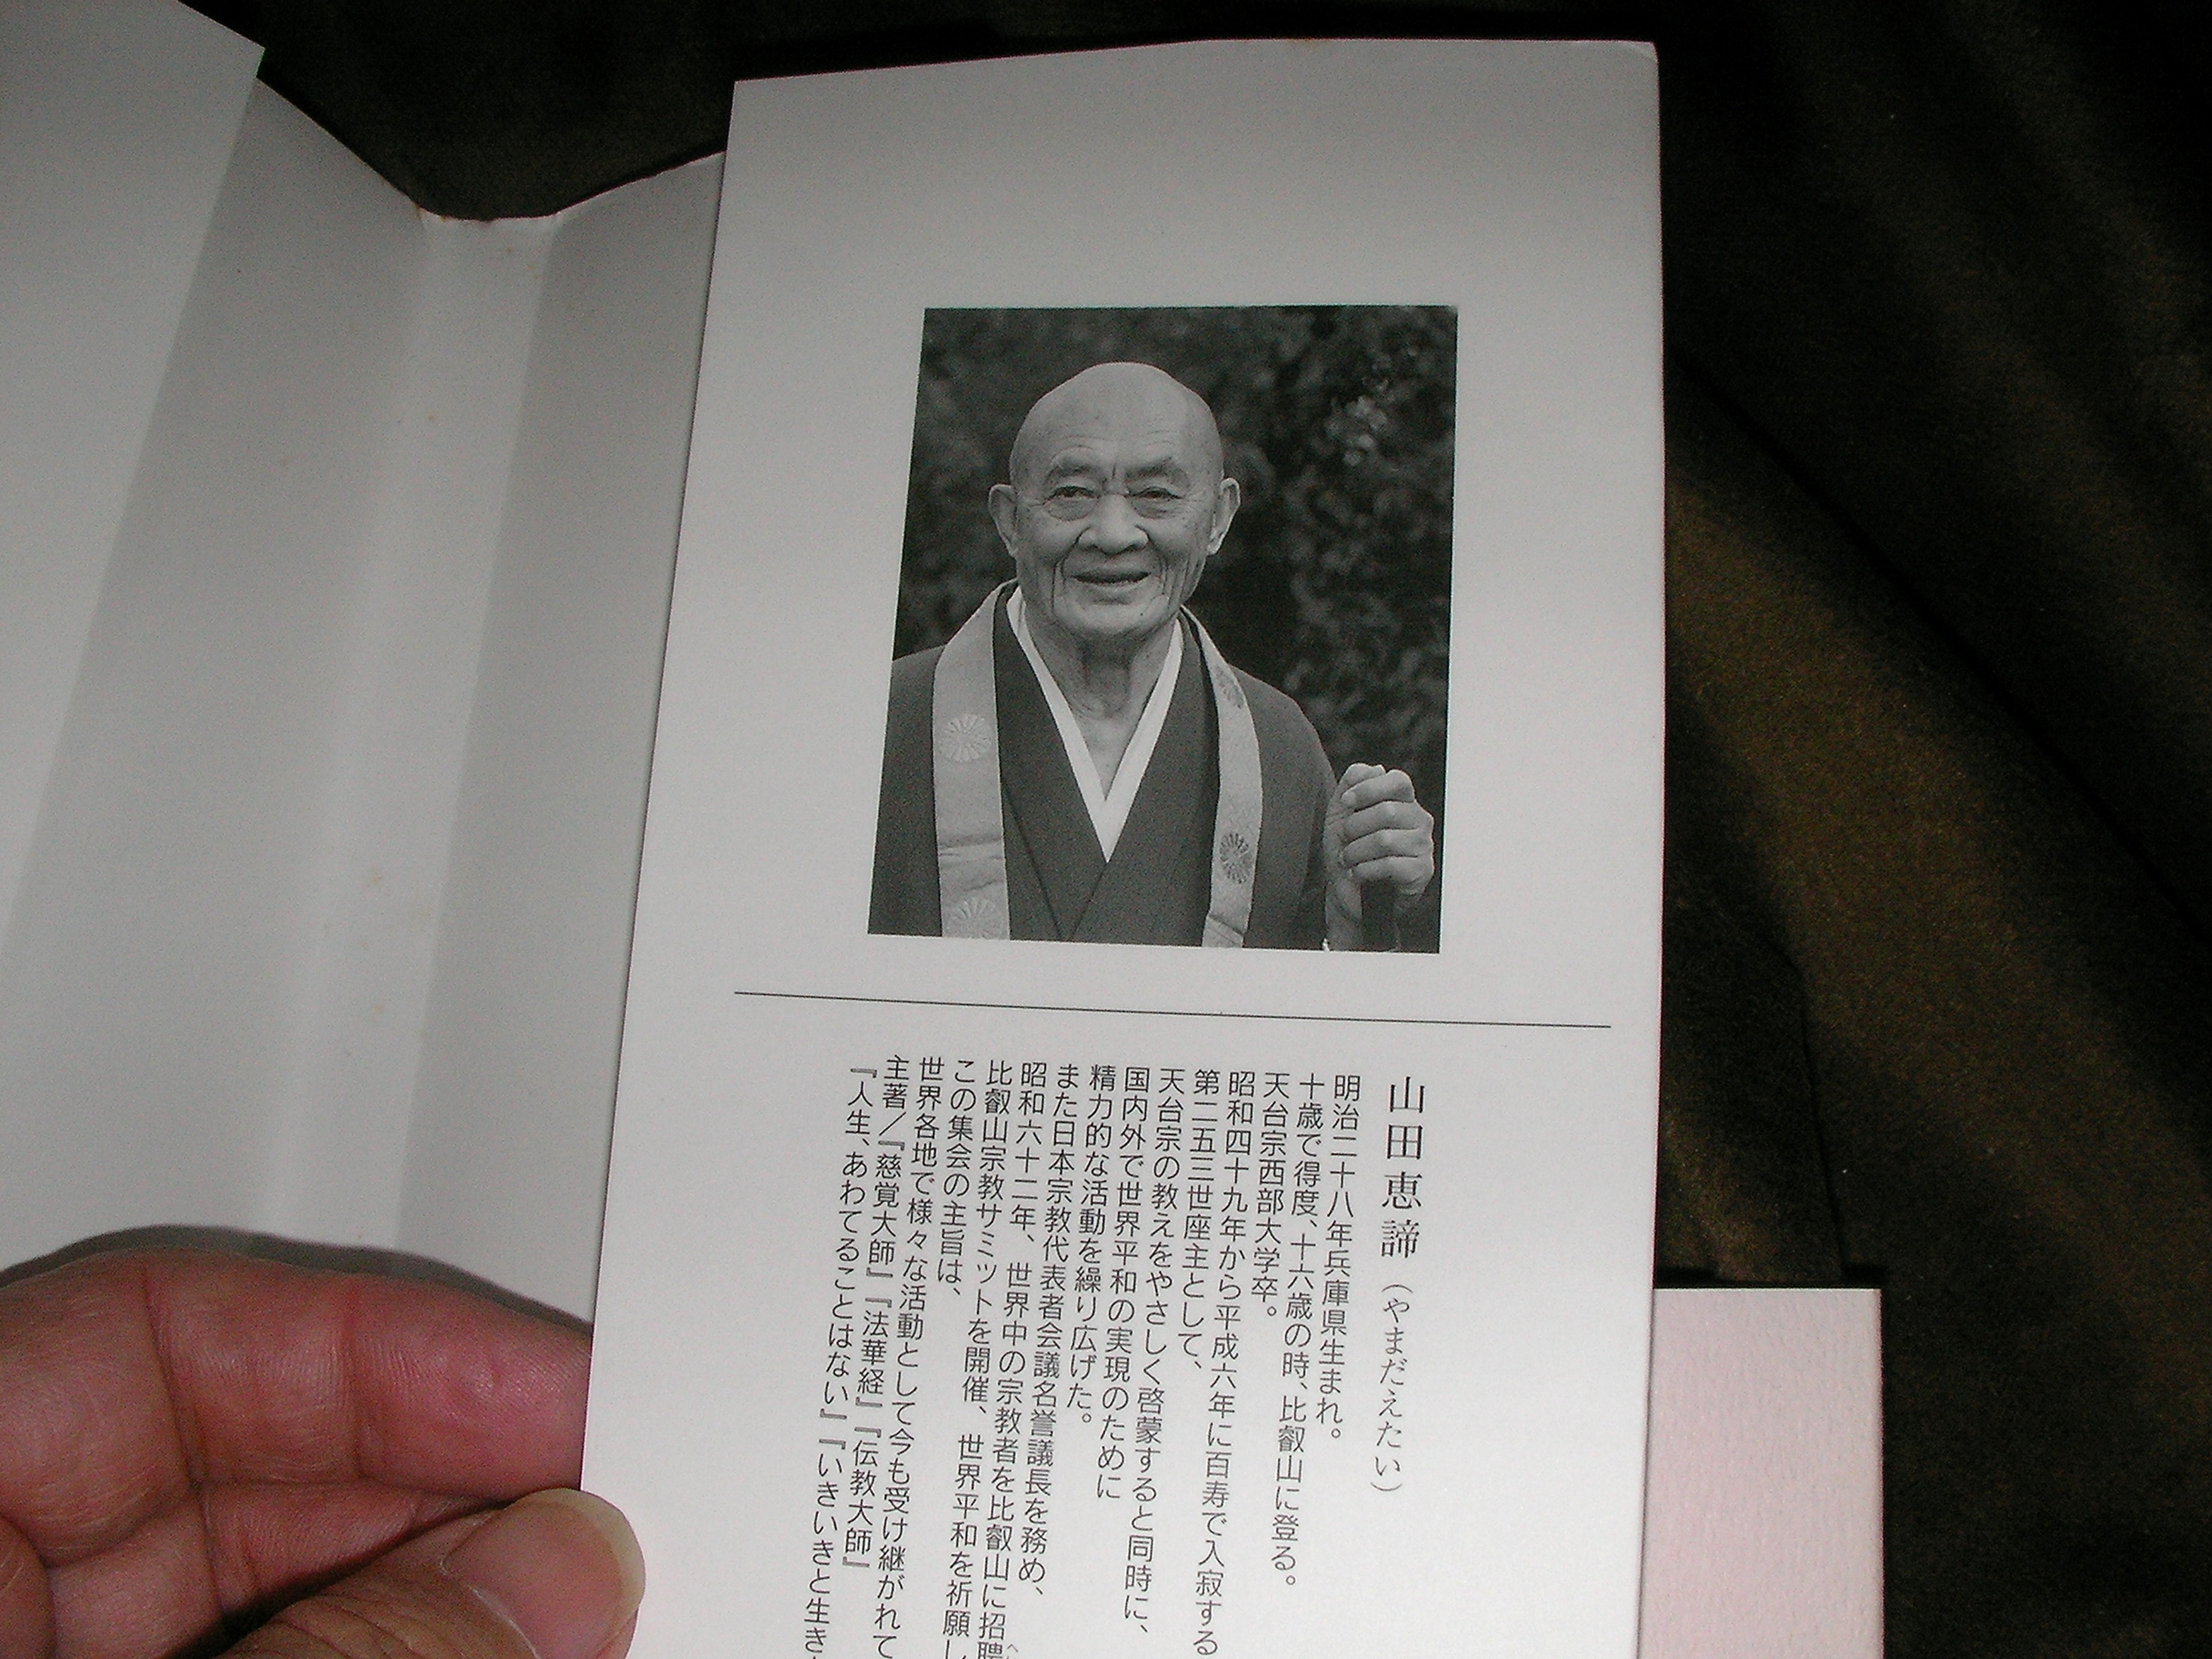 山田恵諦（やまだえたい）
明治二十八年兵庫県生まれ。
十歳で得度、十六歳の時、比叡山に登る。
天台宗西部大学卒。
昭和四十九年から平成六年に百寿で入寂する
第二五三世座主として、
天台宗の教えをやさしく啓蒙すると同時に、
国内外で世界平和の実現のために
精力的な活動を繰り広げた。
また日本宗教代表者会議名誉議長を務め、
昭和六十二年、世界中の宗教者を比叡山に招聘
比叡山宗教サミットを開催、世界平和を祈願し
この集会の主旨は、
世界各地で様々な活動として今も受け継がれて
主著／『慈覚大師』『法華経』『伝教大師』
『人生、あわてることはない』『いきいきと生き